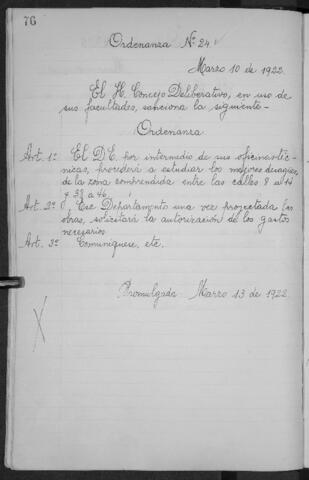 76
Ordenanza Nº 24
Marzo 10 de 1922.
El H. Concejo Deliberativo, en uso de
sus facultades, sanciona la siguiente-
Ordenanza
Art. 1º El D.E. por intermedio de sus oficinas téc-
nicas, procederá a estudiar los mejores desagües,
de la zona comprendida entre las calles 8 al 14
y 38 a 46.
Art. 2º Ese Dehartamento una vez proyectada las
obras, solicitará la autorización de los gastos
necesarios
Art. 3º Comuniquese, etc.
Promulgada Marzo 13 de 1922.
X